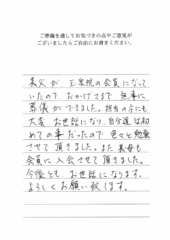 ご葬儀を通してお気づきの点やご意見が
ございましたらご自由にお書きください。
義父が 玉泉院の会員になって
いたので、おかげさまで 無事に
葬儀ができました。担当の方にも
大変 お世話になり、自分達は初
めての事だったので 色々と勉強
させて頂きました。また義母も
会員に入会させて頂きました。
今後とも、お世話になります。
よろしくお願い致します。